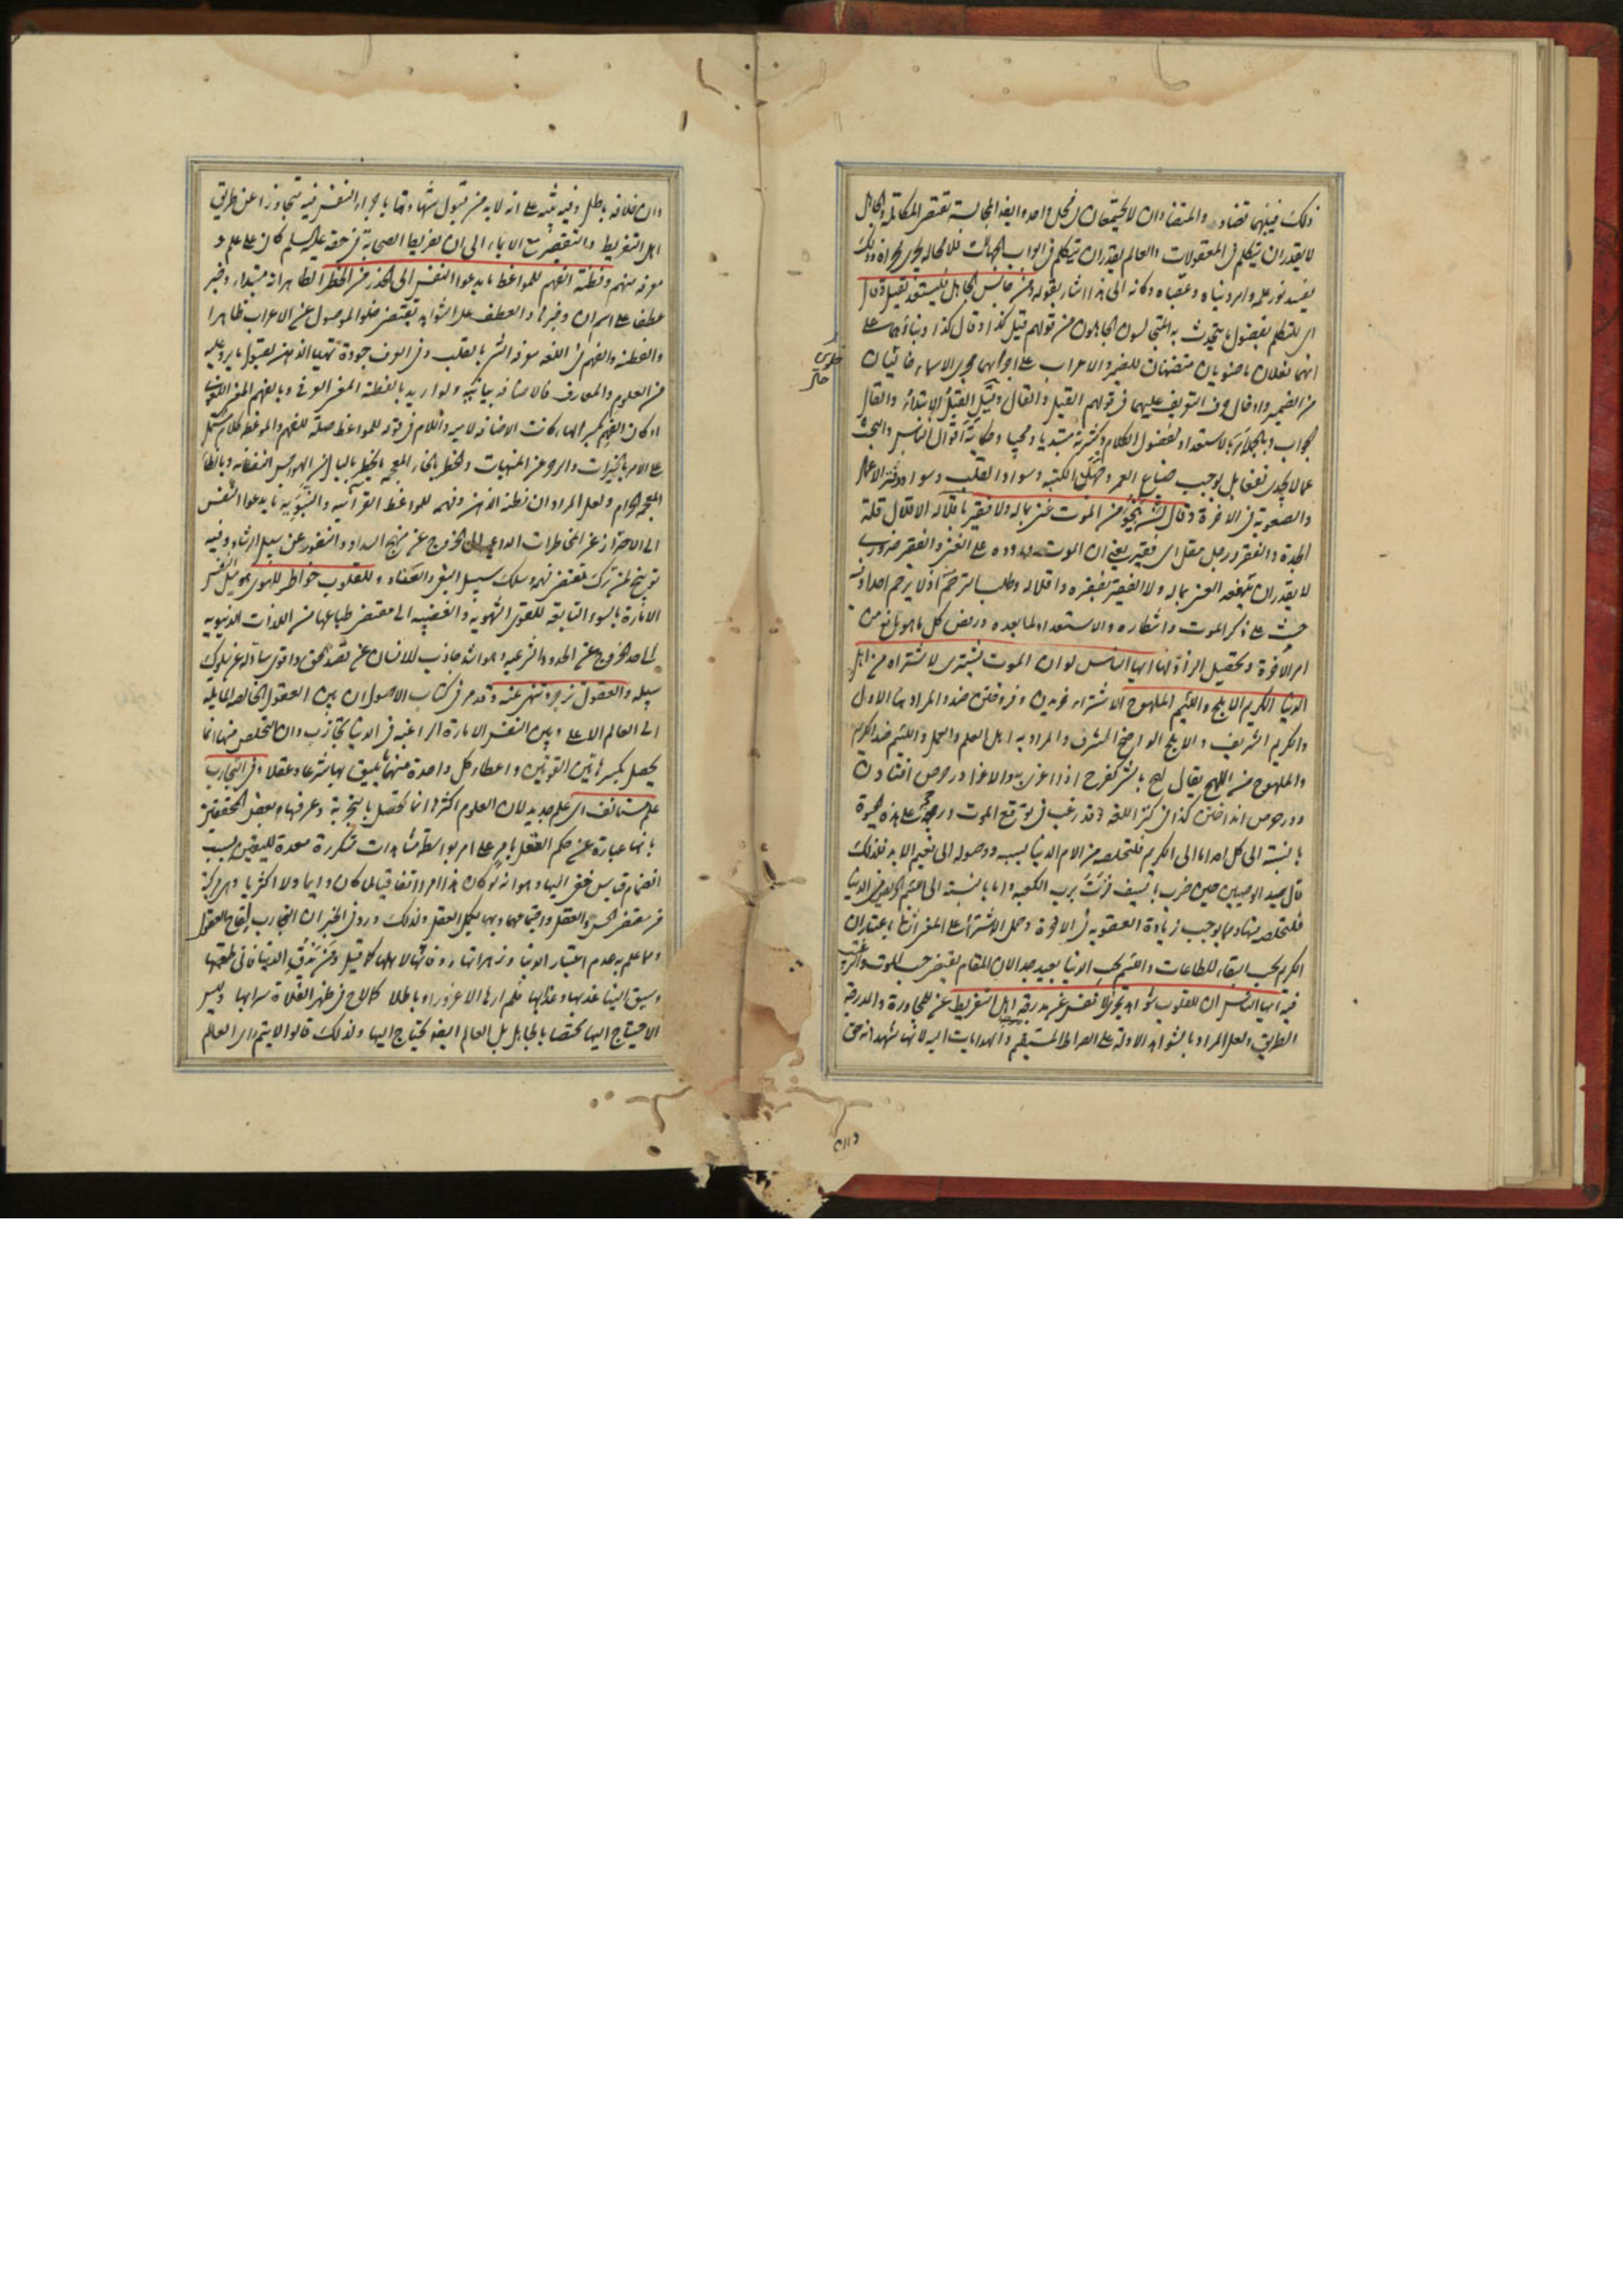 ذلك فبينهما تضاد والمتضادان لا يجتمعان في محل واحد وايضا المجالسة تقتضي المكالمة والجاهل
لا يقدر ان يتكلم في المعقولات والعالم يقدر ان يتكلم في ابواب الجهالات فلا محالة يجري مجراه وذلك
يفسد نور علمه وامر دنياه وعقباه وكانه الى هذا اشار بقوله ومن جالس الجاهل فليستعد لقيل وقال
اى للتكلم بفضول ما يتحدث به المتجالسون الجاهلون من قولهم قيل كذا وقال كذا وبناؤهما على
انهما فعلان ماضويان متضمنان للضمير والاعراب على اجرائهما مجرى الاسماء خاليان
من الضمير وادخال حرف التعريف عليهما في قولهم القيل والقال وقيل القيل الابتداء والقال
الجواب وبالجملة بالاستعداد لفضول الكلام وكثرته مبتديا ومجيبا وحكاية اقوال الناس والبحث
عما لا يجدى نفعا بل يوجب ضياع العمر وسواد القلب وسواد دفتر الاعمال
والصعوبة في الاخرة وقال لن ينجو من الموت غنى بماله ولا فقير باقلاله الاقلال قلة
الجدة والفقر ورجل مقل اى فقير يعنى ان الموت على الغنى والفقير ضرورى
لا يقدر ان يدفعه الغنى بماله ولا الفقير بفقره واقلاله وطلب الترحم اذ لا يرحم احدا وفيه
حث على ذكر الموت وانتظاره والاستعداد لما بعده ورفض كل ما هو مانع من
امر الاخرة وتحصيل الزاد لها ايها الناس لو ان الموت يشترى لاشتراه من اهل
الدنيا الكريم الابلج واللئيم الملهوج الاشتراء خريدن وفروختن ضد والمراد هنا الاول
والكريم الشريف والابلج الواضح المشرف والمراد به اهل العلم والعمل واللئيم ضد الكريم
والملهوج من اللهج يقال لهج بالشئ كفرح اذا اغرى به والاغراء در حرص افتادن
ودر حرص انداختن كذا في كنز اللغة وقد رغب في توقع الموت على هذه الحيوة
بالنسبة الى كل احد اما الى الكريم فلتخلصه من الام الدنيا بسببه ووصوله الى نعيم الابد فلذلك
قال سيد الوصيين حين ضرب بالسيف فزت برب الكعبة واما بالنسبة الى اللئيم الحريص في الدنيا
فلتخلصه منها ومما يوجب زيادة العقوبة في الاخرة وحمل الاشتراء على المعنى الثانى باعتبار ان
الكريم يحب البقاء للطاعات واللئيم يحب الدنيا بعيد جدا لان المقام يقتضى حب الموت والرغبة
فيه ايها الناس ان للقلوب شواهد تجرى الانفس عن مدرجة اهل التفريط عن للمجاوزة والمدرجة
الطريق ولعل المراد بالشواهد الادلة على الصراط المستقيم والهدايات اليه لانها تشهد انه حق
وان
وان خلافه باطل وفيه تنبيه على انه لابد من قبول شهادتها باجراء النفس فيه تتجاوزا عن طريق
اهل التفريط والتقصير مع الايماء الى ان تفريط الصحابة في حقه عليه السلم كان على علم و
معرفة منهم وفطنة الفهم للمواعظ ما يدعوا النفس الى الحذر من الخطر الظاهر انه مبتداء وخبر
عطفا على اسم ان وخبرها والعطف على الشواهد يقتضى خلو الموصول عن الاعراب ظاهرا
والفطنة والفهم في اللغة معرفة الشئ بالقلب وفي العرف جودة تهيا الذهن لقبول ما يرد عليه
من العلوم والمعارف فالاضافة بيانية ولو اريد بالفطنة المعنى العرفى وبالفهم المعنى اللغوى
او كان الفهم بكسر الهاء كانت الاضافة لامية واللام في قوله للمواعظ صلة للفهم والموعظة كلام يشتمل
على الامر بالخيرات والزجر عن المنهيات والخطر بالخاء المعجمة
المعجمة الحرام ولعل المراد ان فطنة الذهن وفهمه للمواعظ القرآنية والنبوية ما يدعوا النفس
الى الاحتراز عن المخاطرات الداعية الى الخروج عن منهج السداد والنفور عن سبيل الرشاد وفيه
توبيخ لمن ترك مقتضى فهمه وسلك سبيل البغى والعناد وللقلوب خواطر للهوى هو ميل النفس
الامارة بالسوء التابعة للقوى الشهوية والغضبية الى مقتضى طباعها من اللذات الدنيوية
الى حد الخروج عن الحدود الشرعية وهو اشد جاذب للانسان عن قصد الحق واقوى ساد له عن سلوك
سبيله والعقول تزجر وتنهى عنه وقد مر في كتاب الاصول ان بين العقول الخالصة المايلة
الى العالم الاعلى وبين النفس الامارة الراغبة في الدنيا تجاذب وان التخلص منها انما
يحصل بكسر هاتين القوتين واعطاء كل واحدة منهما ما يليق بها شرعا وعقلا وفي التجارب
علم مستانف اى علم جديد لان العلوم اكثرها انما تحصل بالتجربة وعرفها بعض المحققين
بانها عبارة عن حكم العقل بامر على امر بواسطة مشاهدات متكررة معدة لليقين بسبب
انضمام قياس خفى اليها وهو انه لو كان هذا الامر اتفاقيا لما كان دايما ولا اكثريا وهى مركبة
من مقتضى الحس والعقل واجتماعهما وبهما يكمل العقل ولذلك ورد في الخبر ان التجارب لقاح العقول
ومما علم به عدم اعتبار الدنيا وزهراتها ووفائها لاهلها كما قيل ومن يذق الدنيا فانى طعمتها
وسيق الينا عذبها وعذابها فلم ارها الا غرورا وباطلا كما لاح في ظهر الفلاة سرابها وليس
الاحتياج اليها مختصا بالجاهل بل العالم ايضا يحتاج اليها ولذلك قالوا لا يتم راى العالم